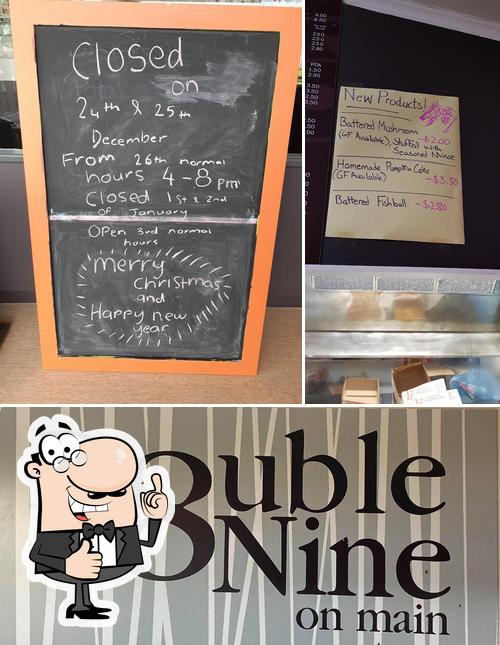 Closed
on
24th & 25th
December
From 26th normal
hours 4-8 pm
Closed 1st & 2nd
of January
Open 3rd normal
hours
merry
Christmas
and
Happy new
year
4.00
2.50
2.50
2.50
2.80
POA
1.50
2.90
New Products!
Battered Mushroom -$2.00
(GF Available), Stuffed with
Seasoned Mince
Homemade Pumpkin Cakes
(GF Available) -$3.50
Battered Fishball -$2.80
uble
Nine
on main